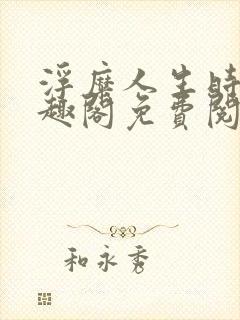 浮靡人生時
趣閣免費閱
和永秀